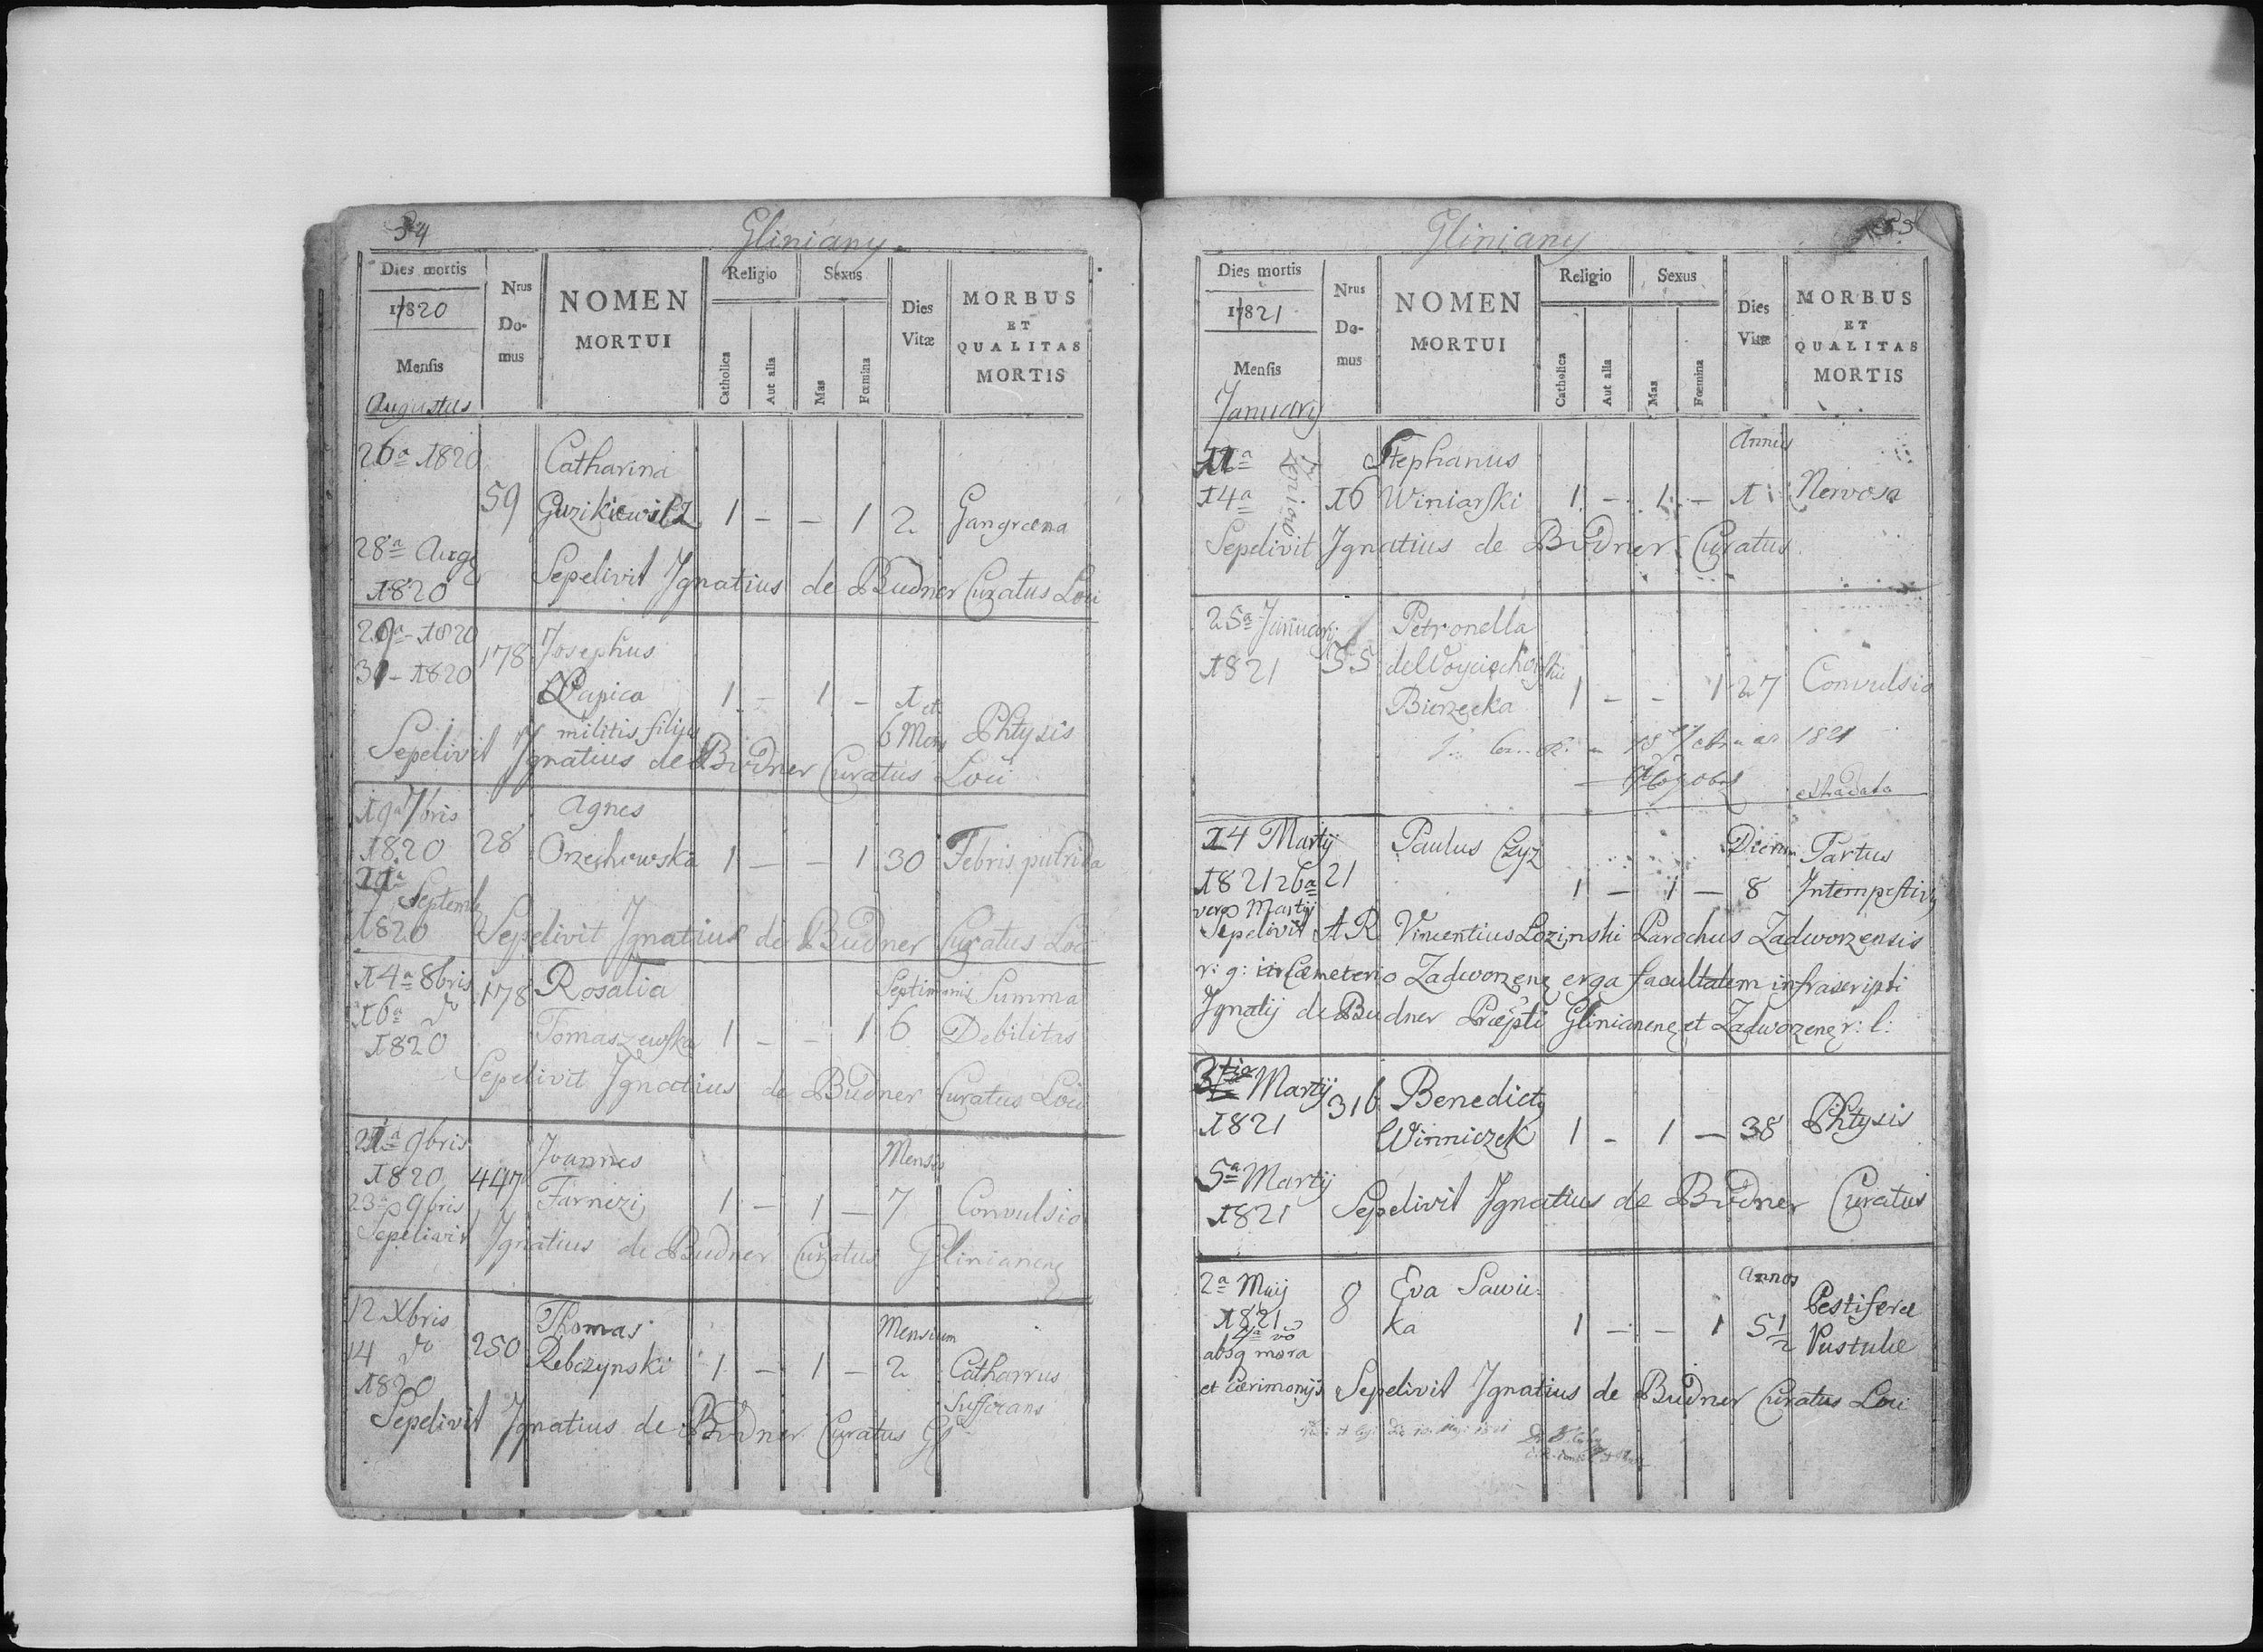 34
Gliniany
Dies mortis
Nrus Domus
NOMEN MORTUI
Religio
Sexus
Dies Vitæ
MORBUS ET QUALITAS MORTIS
1820
Mensis
Catholica
Aut alia
Mas
Fœmina
Augustus
26a 1820
Catharina
59 Guzikiewicz 1 - - 1 2 Gangræna
28a Aug
1820
Sepelivit Ignatius de Budner Curatus Loci
1820
178 Josephus
1820
Papica 1 - 1 - 1 et
militis filius 6 Mens Phtysis
Sepelivit Ignatius de Budner Curatus Loci
19a 7bris Agnes
1820 28 Orzechowska 1 - - 1 30 Febris putrida
Septemb
1820 Sepelivit Ignatius de Budner Curatus Loci
14a 8bris 178 Rosalia Summa
16a do
1820 Tomaszewska 1 - - 1 6 Debilitas
Sepelivit Ignatius de Budner Curatus Loci
21a 9bris Joannes Mensis
1820 447 Farnezi 1 - 1 - 7 Convulsio
23a 9bris
Sepelivit Ignatius de Budner Curatus Glinianens
12 Xbris Thomas Mensium
14 do 250 Rebczynski 1 - 1 - 2 Catharrus
1820 Suffocans
Sepelivit Ignatius de Budner Curatus Gl
Gliniany
Dies mortis
Nrus Domus
NOMEN MORTUI
Religio
Sexus
Dies Vitæ
MORBUS ET QUALITAS MORTIS
1821
Mensis
Catholica
Aut alia
Mas
Fœmina
January
Stephanus Annus
14a 16 Winiarski 1 - 1 - 1 Nervosa
Sepelivit Ignatius de Budner Curatus
25a January Petronella
1821 55 de Woyciechowskie
Bierzecka 1 - - 1 27 Convulsio
1821
extradata
14 Martij Paulus Czyz Dierum Partus
1821 26a 21 1 - 1 - 8 Intempestivus
vero Martij
Sepelivit A R Vincentius Lozinski Parochus Zadworzensis
r: g: in Cæmeterio Zadworzens erga facultatem infrascripti
Ignatij de Budner Præpti Glinianens et Zadworzens r: l:
3tia Martij 316 Benedictus
1821 Winniczek 1 - 1 - 38 Phtysis
5a Martij
1821 Sepelivit Ignatius de Budner Curatus
2a Maij 8 Eva Sawic- Annos Pestiferæ
1821 ka 1 - - 1 5 1/2 Pustulæ
absq mora
et Cærimonijs Sepelivit Ignatius de Budner Curatus Loci